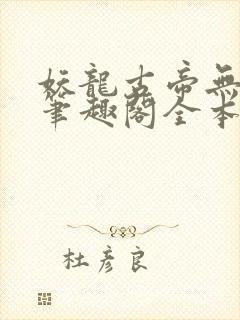 妖龍古帝無
筆趣閣全本
杜彥良